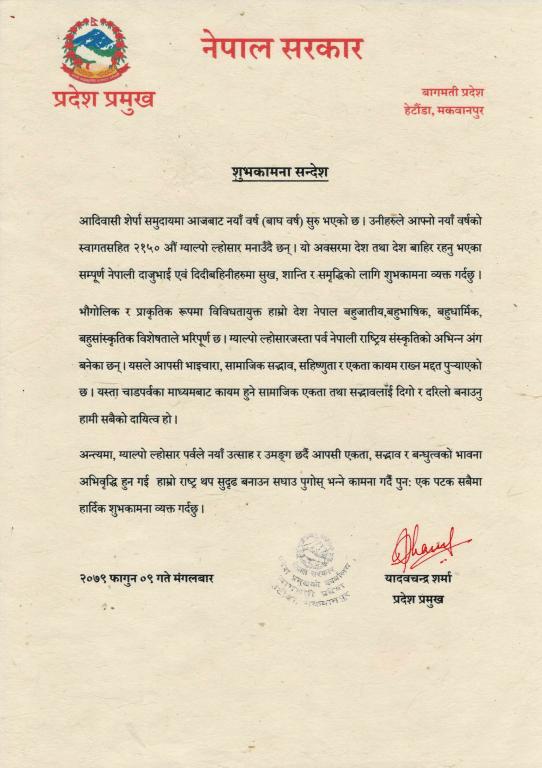 नेपाल सरकार
प्रदेश प्रमुख
बागमती प्रदेश
हेटौंडा, मकवानपुर
शुभकामना सन्देश
आदिवासी शेर्पा समुदायमा आजबाट नयाँ वर्ष (बाघ वर्ष) सुरु भएको छ । उनीहरुले आफ्नो नयाँ वर्षको
स्वागतसहित २१५० औं ग्याल्पो ल्होसार मनाउँदै छन् । यो अवसरमा देश तथा देश बाहिर रहनु भएका
सम्पूर्ण नेपाली दाजुभाई एवं दिदीबहिनीहरुमा सुख, शान्ति र समृद्धिको लागि शुभकामना व्यक्त गर्दछु ।
भौगोलिक र प्राकृतिक रूपमा विविधतायुक्त हाम्रो देश नेपाल बहुजातीय,बहुभाषिक, बहुधार्मिक,
बहुसांस्कृतिक विशेषताले भरिपूर्ण छ । ग्याल्पो ल्होसारजस्ता पर्व नेपाली राष्ट्रिय संस्कृतिको अभिन्न अंग
बनेका छन् । यसले आपसी भाइचारा, सामाजिक सद्भाव, सहिष्णुता र एकता कायम राख्न मद्दत पुऱ्याएको
छ । यस्ता चाडपर्वका माध्यमबाट कायम हुने सामाजिक एकता तथा सद्भावलाई दिगो र दरिलो बनाउनु
हामी सबैको दायित्व हो ।
अन्त्यमा, ग्याल्पो ल्होसार पर्वले नयाँ उत्साह र उमङ्ग छर्दै आपसी एकता, सद्भाव र बन्धुत्वको भावना
अभिवृद्धि हुन गई हाम्रो राष्ट्र थप सुदृढ बनाउन सघाउ पुगोस् भन्ने कामना गर्दै पुन: एक पटक सबैमा
हार्दिक शुभकामना व्यक्त गर्दछु ।
२०७९ फागुन ०९ गते मंगलबार
यादवचन्द्र शर्मा
प्रदेश प्रमुख
नेपाल सरकार
प्रदेश प्रमुखको कार्यालय
बागमती प्रदेश
हेटौंडा, मकवानपुर